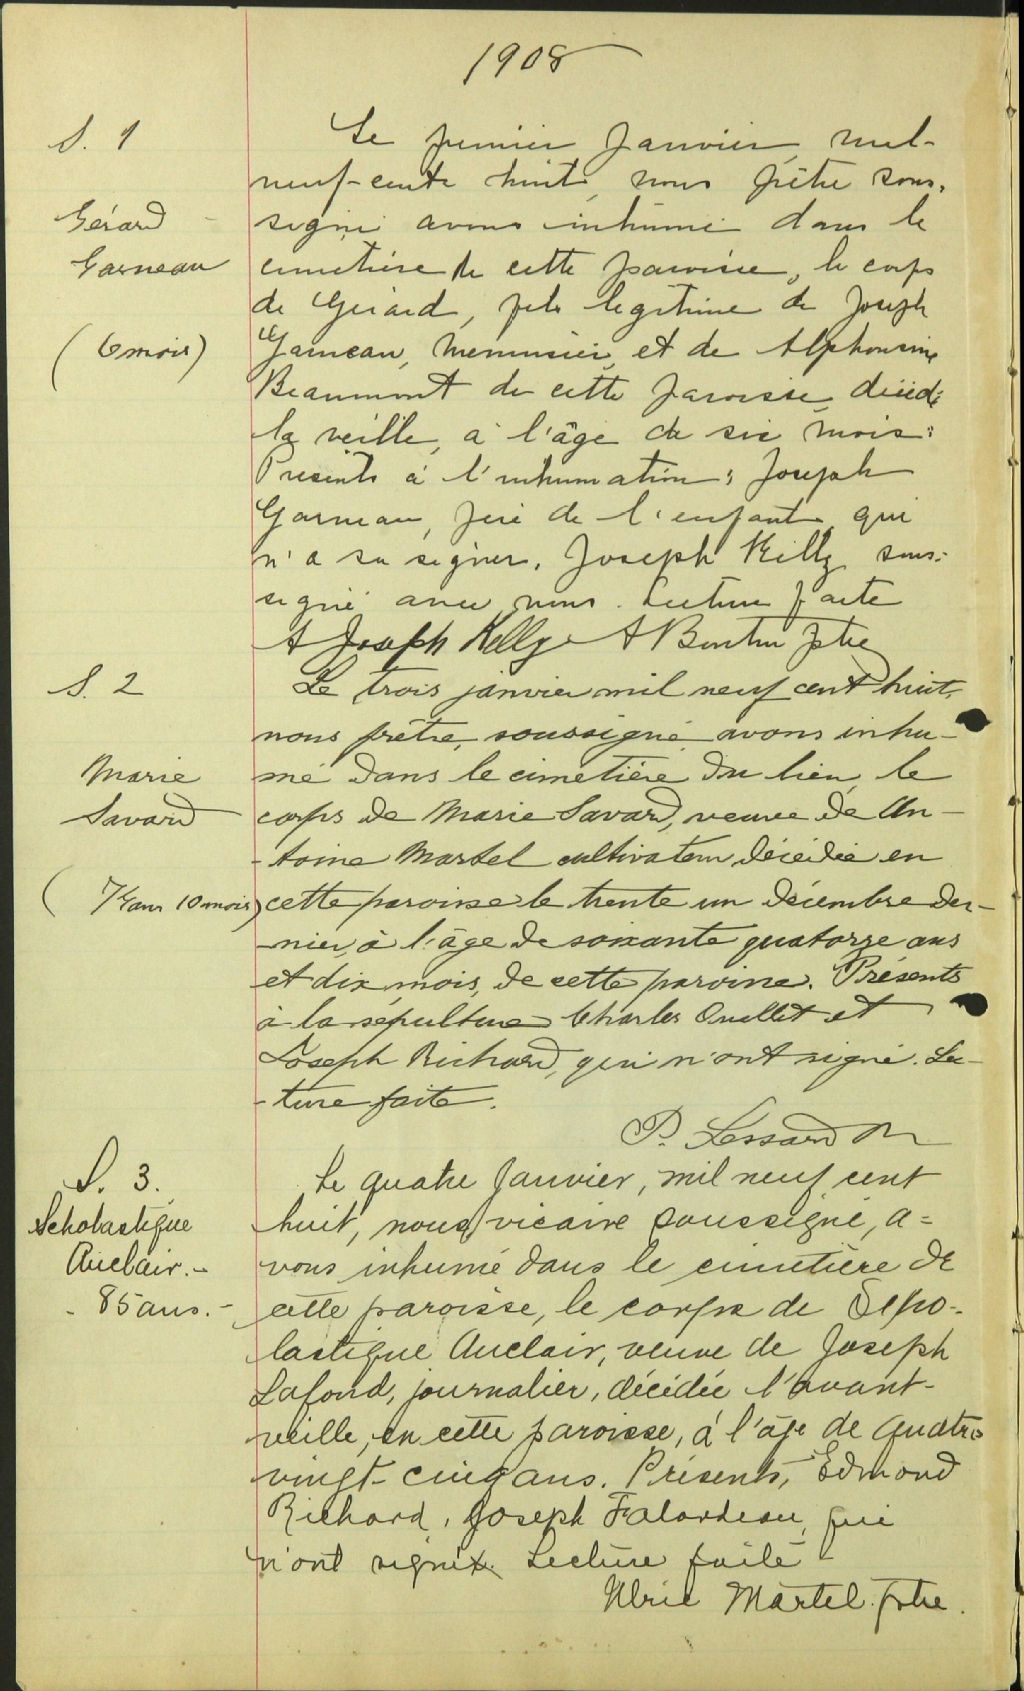 1908
S. 1
Gérard
Garneau
(6 mois)
Le premier Janvier, mil-
neuf-cents huit, nous prêtre sous-
signé avons inhumé dans le
cimetière de cette paroisse, le corps
de Gérard, fils légitime de Joseph
Garneau, menuisier, et de Alphonsine
Beaumont de cette paroisse, décédé
la veille, à l'âge de six mois.
Présents à l'inhumation: Joseph
Garneau, père de l'enfant, qui
n'a su signer, Joseph Kelly sous-
signé avec nous. Lecture faite
+ Joseph Kelly + A Boutin ptre
S. 2
Marie
Savard
(74 ans 10 mois)
Le trois janvier mil neuf cent huit,
nous prêtre, soussigné avons inhu-
mé dans le cimetière du lieu, le
corps de Marie Savard, veuve de An-
-toine Martel cultivateur décédée en
cette paroisse le trente un décembre der-
-nier, à l'âge de soixante quatorze ans
et dix mois, de cette paroisse. Présents
à la sépulture Charles Ouellet et
Joseph Richard, qui n'ont signé. Lec-
-ture faite.
P. Lessard
S. 3.
Scholastique
Auclair.-
- 85 ans.-
Le quatre Janvier, mil neuf cent
huit, nous, vicaire soussigné, a=
vons inhumé dans le cimetière de
cette paroisse, le corps de
lastique Auclair, veuve de Joseph
Lafond, journalier, décédée l'avant-
veille, en cette paroisse, à l'âge de quatre
vingt-cinq ans. Présents, Edmond
Richard, Joseph Falardeau, qui
n'ont signé. Lecture faite -
Ulric Martel. ptre.